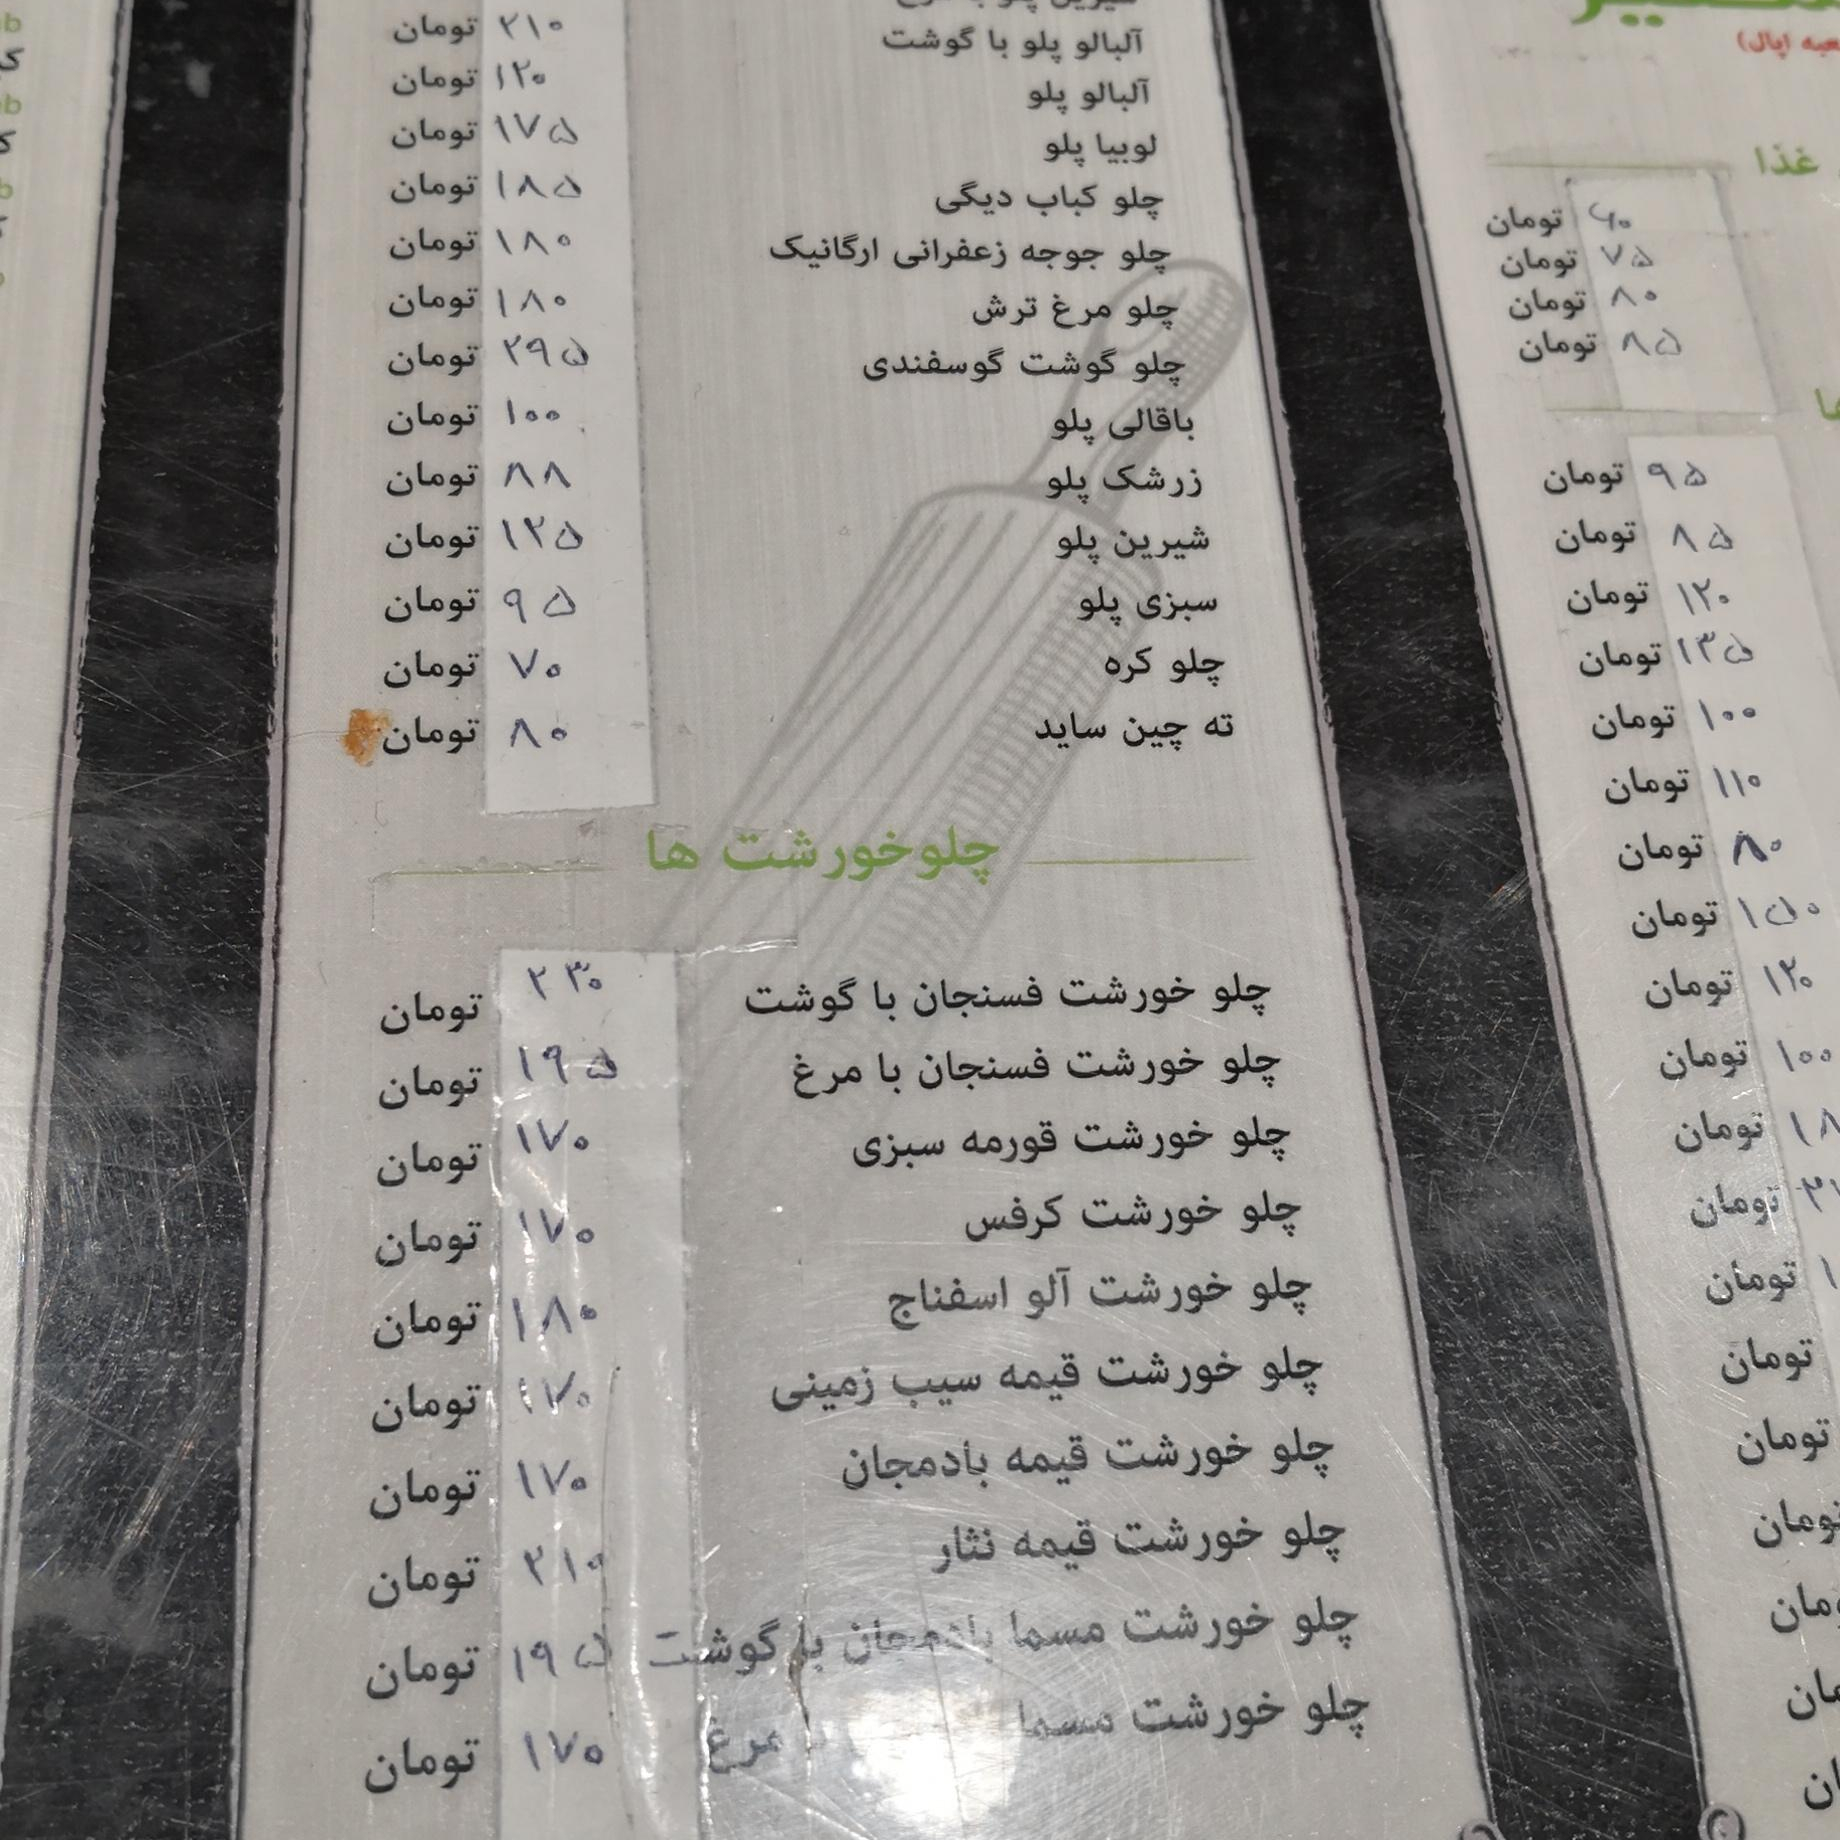 آلبالو پلو با گوشت ۲۱۰ تومان
آلبالو پلو ۱۲۰ تومان
لوبیا پلو ۱۷۵ تومان
چلو کباب دیگی ۱۸۵ تومان
چلو جوجه زعفرانی ارگانیک ۱۸۰ تومان
چلو مرغ ترش ۱۸۰ تومان
چلو گوشت گوسفندی ۲۹۵ تومان
باقالی پلو ۱۰۰ تومان
زرشک پلو ۸۸ تومان
شیرین پلو ۱۲۵ تومان
سبزی پلو ۹۵ تومان
چلو کره ۷۰ تومان
ته چین ساید ۸۰ تومان
چلوخورشت ها
چلو خورشت فسنجان با گوشت ۲۳۰ تومان
چلو خورشت فسنجان با مرغ ۱۹۵ تومان
چلو خورشت قورمه سبزی ۱۷۰ تومان
چلو خورشت کرفس ۱۷۰ تومان
چلو خورشت آلو اسفناج ۱۸۰ تومان
چلو خورشت قیمه سیب زمینی ۱۷۰ تومان
چلو خورشت قیمه بادمجان ۱۷۰ تومان
چلو خورشت قیمه نثار ۲۱۰ تومان
چلو خورشت مسما بادمجان با گوشت ۱۹۵ تومان
چلو خورشت مسما مرغ ۱۷۰ تومان
غذا
۶۰ تومان
۷۵ تومان
۸۰ تومان
۸۵ تومان
۹۵ تومان
۸۵ تومان
۱۲۰ تومان
۱۳۵ تومان
۱۰۰ تومان
۱۱۰ تومان
۸۰ تومان
۱۵۰ تومان
۱۲۰ تومان
۱۰۰ تومان
تومان
تومان
تومان
تومان
تومان